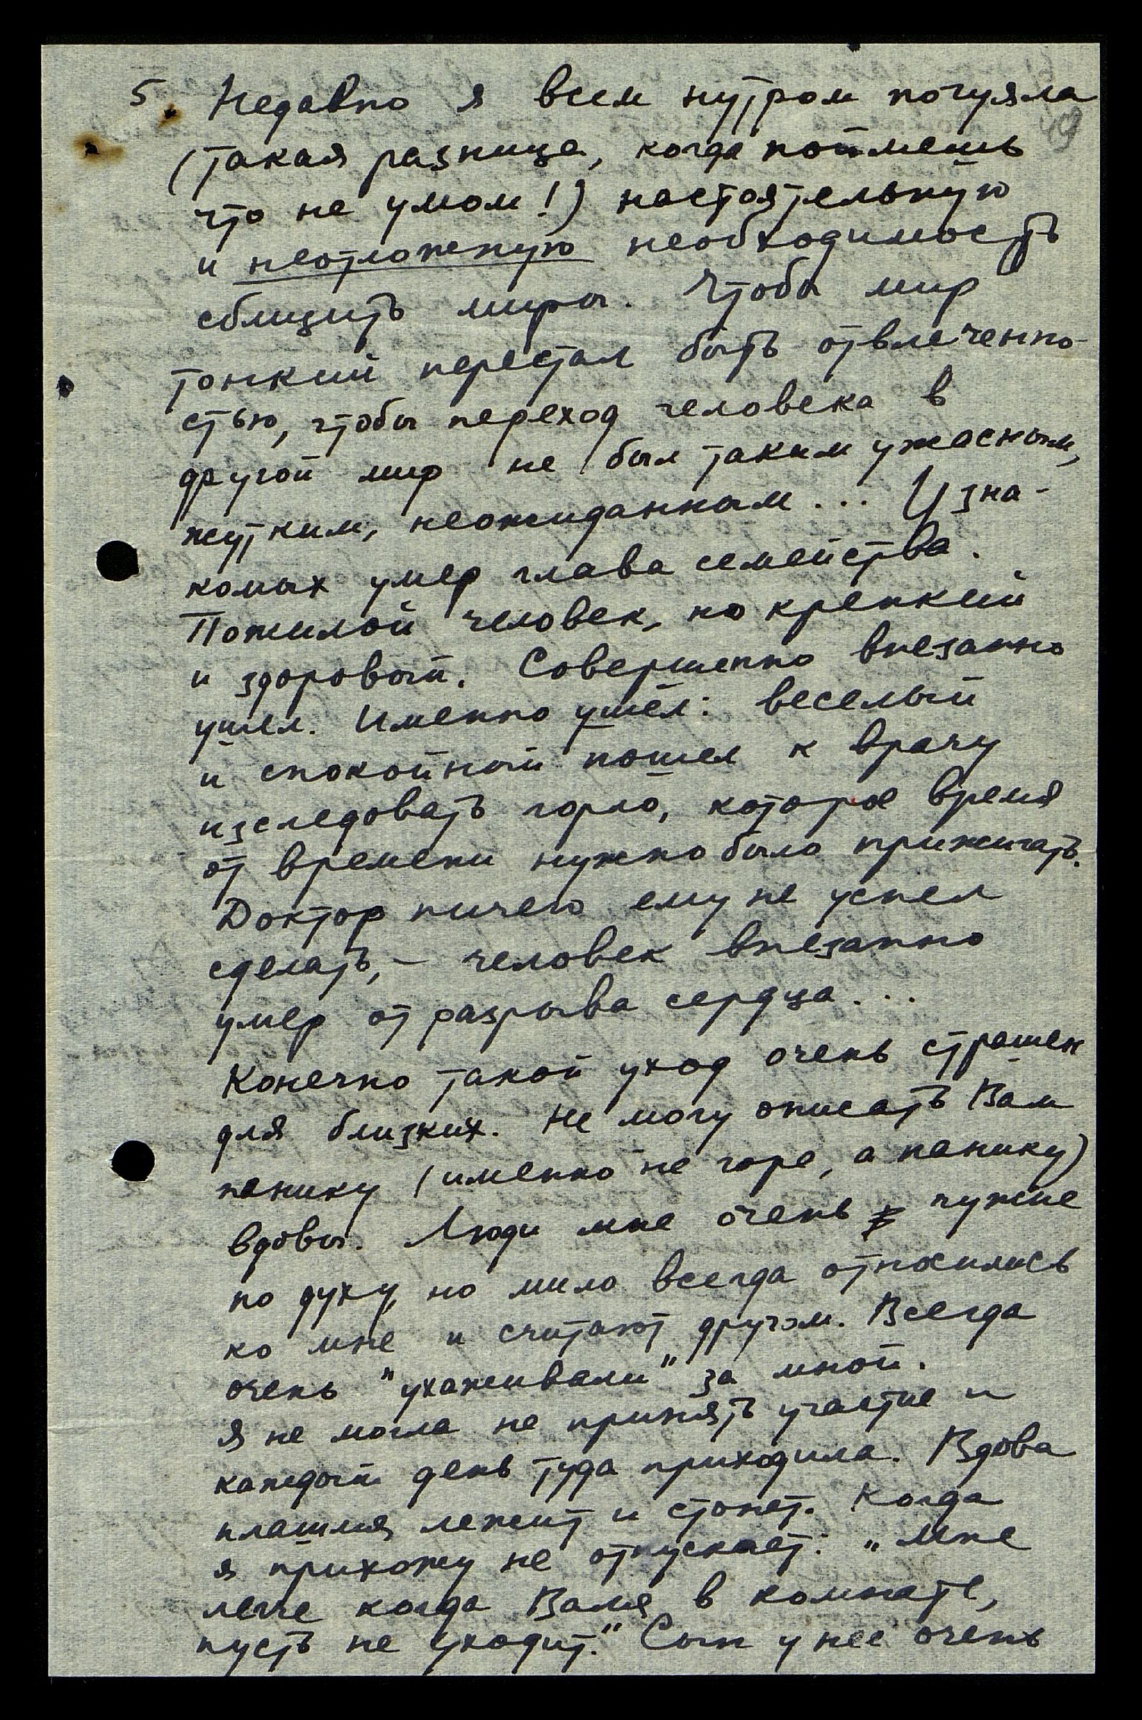 5. Недавно я всем нутром почуяла
49
(такая разница, когда поймешь
что не умом!) настоятельную
и неотложную необходимость
сблизить миры. Чтобы мир
тонкий перестал быть отвлеченно-
стью, чтобы переход человека в
другой мир не был таким ужасным,
жутким, неожиданным... У зна-
комых умер глава семейства.
Пожилой человек, но крепкий
и здоровый. Совершенно внезапно
ушел. Именно ушёл: веселый
и спокойный пошел к врачу
изследовать горло, которое время
от времени нужно было прижигать.
Доктор ничего ему не успел
сделать, – человек внезапно
умер от разрыва сердца...
Конечно такой уход очень страшен
для близких. Не могу описать Вам
панику (именно не горе, а панику)
вдовы. Люди мне очень чужие
по духу, но мило всегда относились
ко мне и считают другом. Всегда
очень "ухаживали" за мной.
Я не могла не принять участие и
каждый день туда приходила. Вдова
пластмя лежит и стонет. Когда
я прихожу не отпускает: „Мне
легче когда Валя в комнате,
пусть не уходит." Сын у нее очень